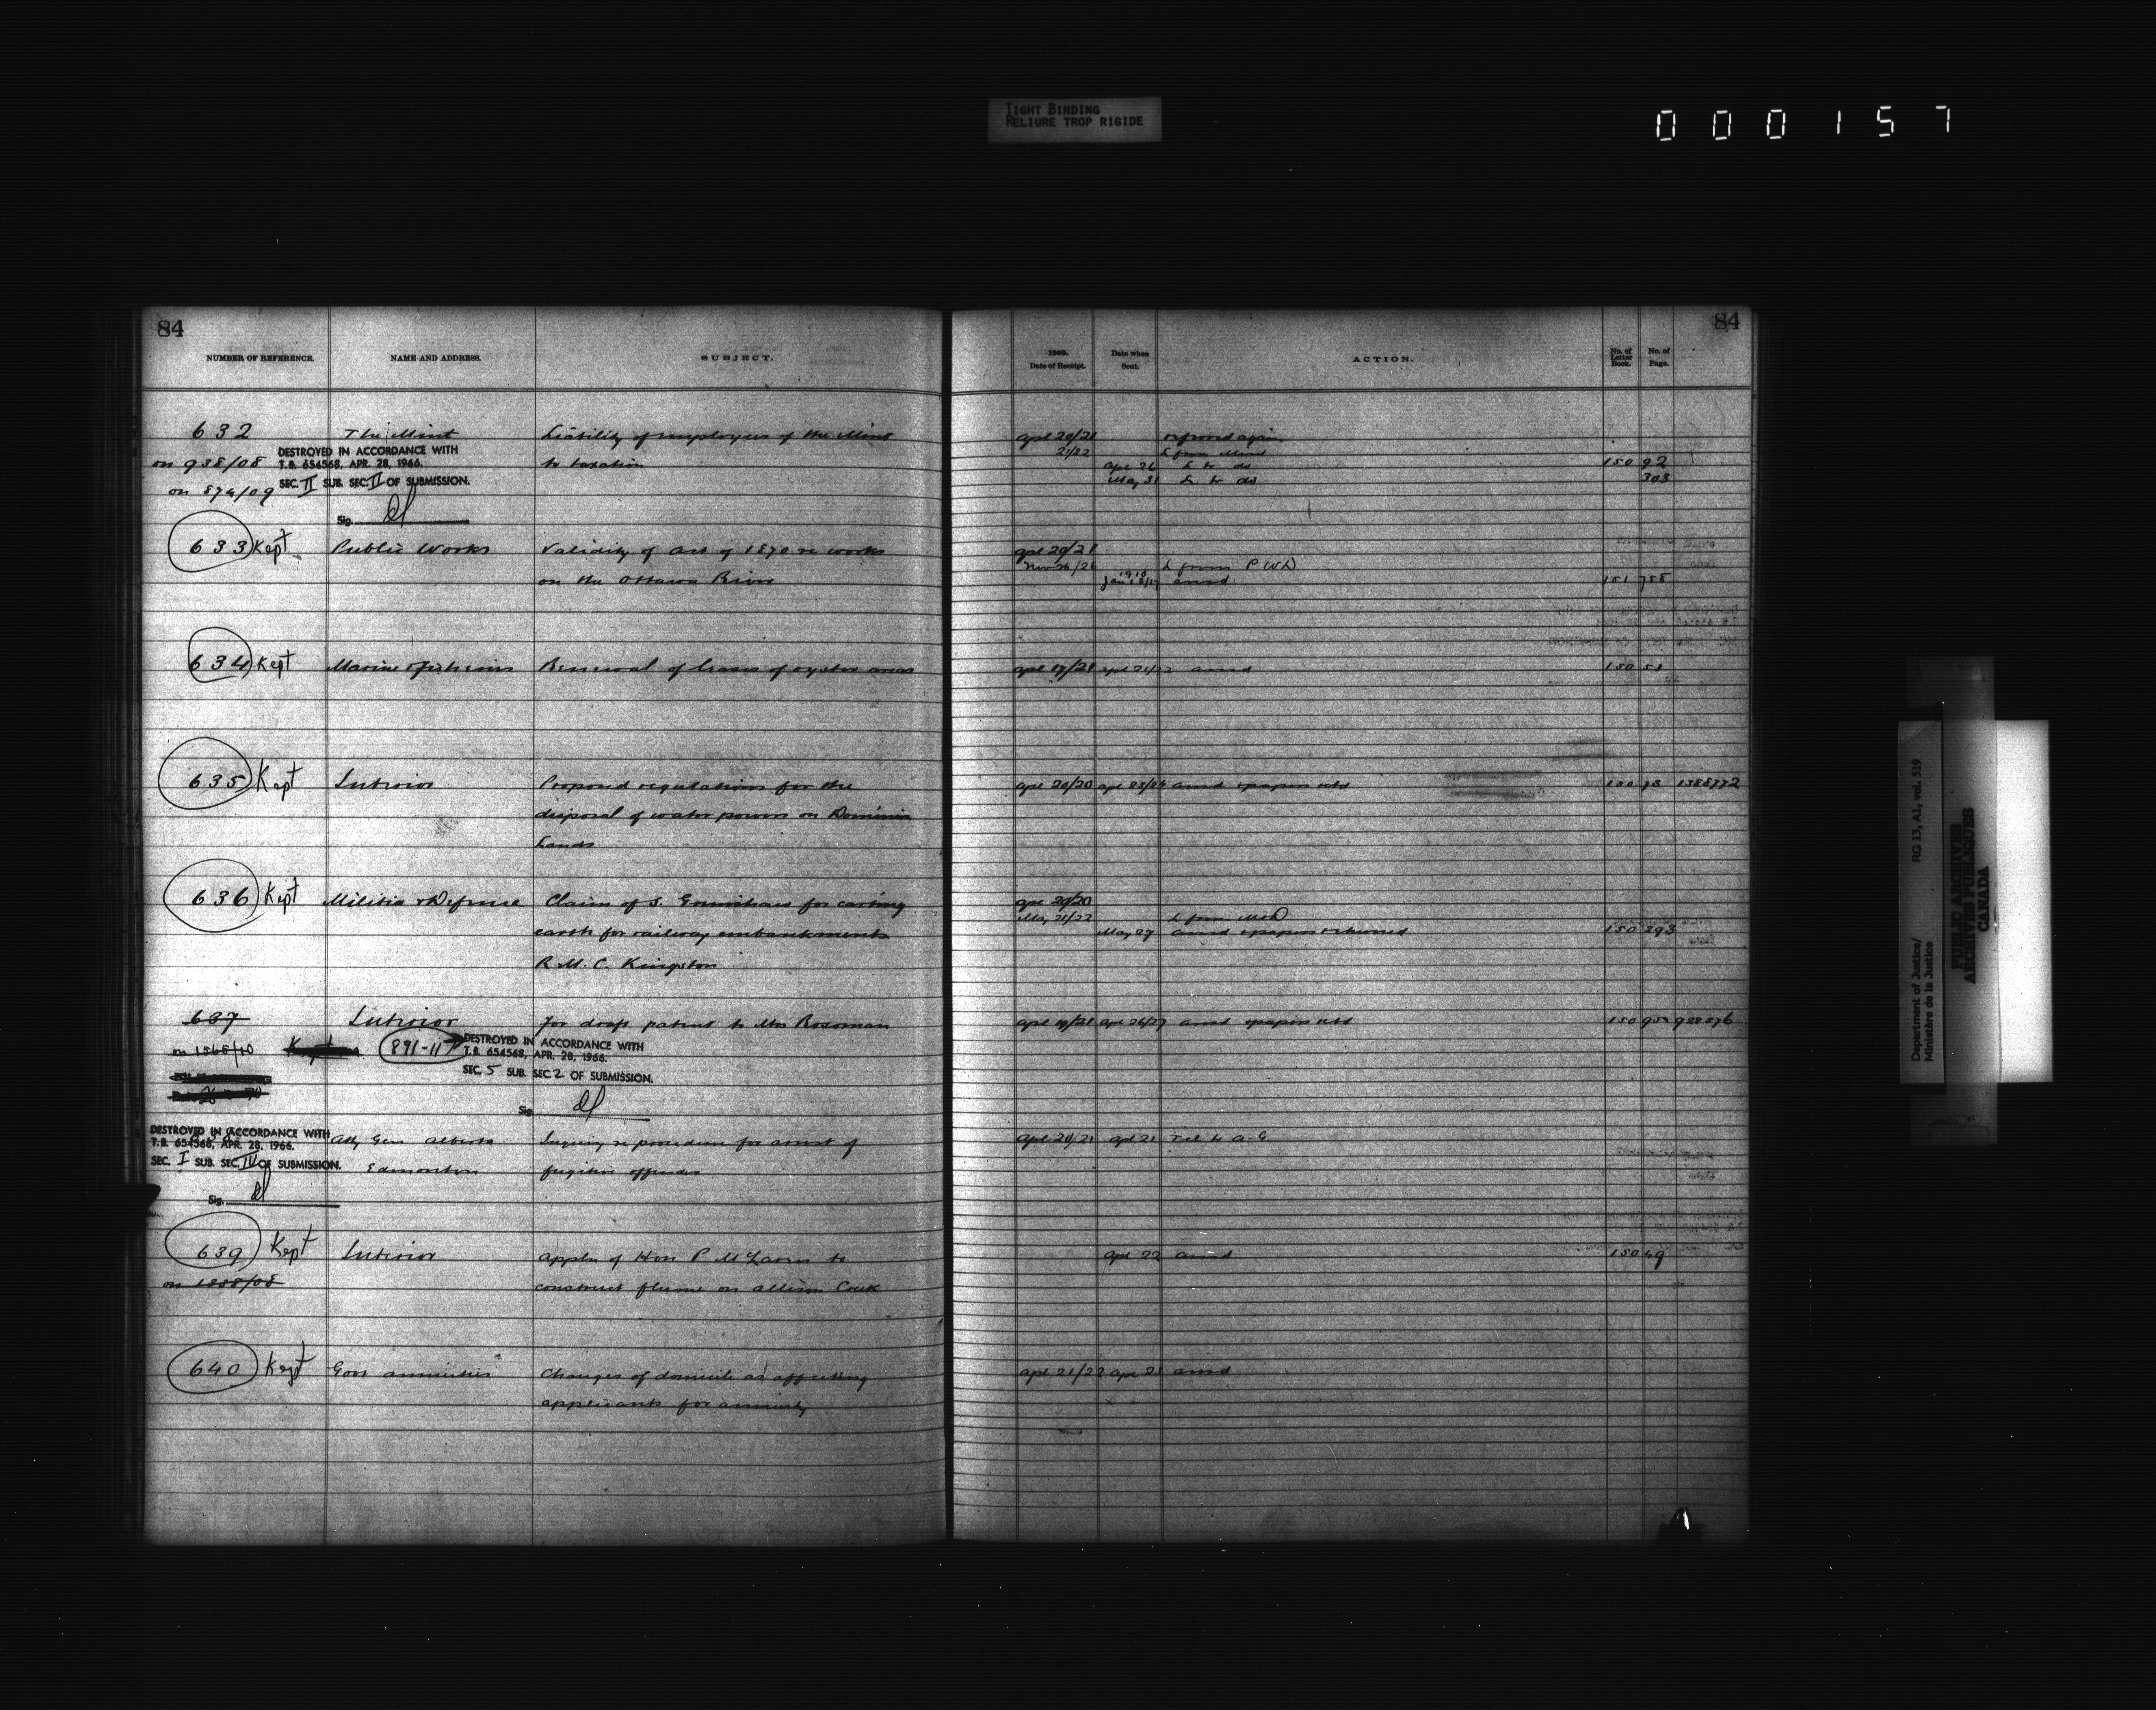 TIGHT BINDING
RELIURE TROP RIGIDE
000157
84
84
NUMBER OF REFERENCE. NAME AND ADDRESS. SUBJECT. 1909. Date of Receipt. Date when Sent. ACTION. No. of Letter Book. No. of Page.
632 The Mint Liability of employees of the Mint apl 20/21 referred again
21/22 L from Mint
on 938/08 to taxation apl 26 L to do 150 92
on 874/09 May 31 L to do 303
DESTROYED IN ACCORDANCE WITH
T.B. 654568, APR. 28, 1966.
SEC. II SUB. SEC. II OF SUBMISSION.
Sig.
633 Kept Public Works Validity of act of 1870 re works apl 20/21
Nov 26/26 L from PWD
on the Ottawa River 1910 Jan 18/19 ansd 151 755
634 Kept Marine & Fisheries Renewal of leases of oyster areas apl 17/21 apl 21/22 ansd 150 51
635 Kept Interior Proposed regulations for the apl 20/20 apl 23/24 ansd & papers retd 150 78 1388772
disposal of water powers on Dominion
Lands
636 Kept Militia & Defence Claim of S. for carting apl 20/20
May 21/22 L from M&D
earth for railway embankments May 27 ansd & papers returned 150 293
R.M.C. Kingston
637 Interior For draft patent to Mrs Bosoman apl 19/21 apl 26/27 ansd & papers retd 150 95
on 1568/10 891-11
DESTROYED IN ACCORDANCE WITH
T.B. 654568, APR. 28, 1966.
SEC. 5 SUB. SEC. 2 OF SUBMISSION.
Sig.
Atty Gen Alberta Inquiry re procedure for arrest of apl 20/21 apl 21 Tel to A-G
Edmonton fugitive offender
DESTROYED IN ACCORDANCE WITH
T.B. 654568, APR. 28, 1966.
SEC. I SUB. SEC. IV OF SUBMISSION.
Sig.
639 Kept Interior Appln of Hon P McLaren to apl 22 ansd 150 49
construct flume on Allison Creek
640 Kept Govt annuities Changes of domicile as affecting apl 21/22 apl 23 ansd
applicants for annuity
Department of Justice/ RG 13, A1, vol. 519
Ministère de la Justice
PUBLIC ARCHIVES
ARCHIVES PUBLIQUES
CANADA